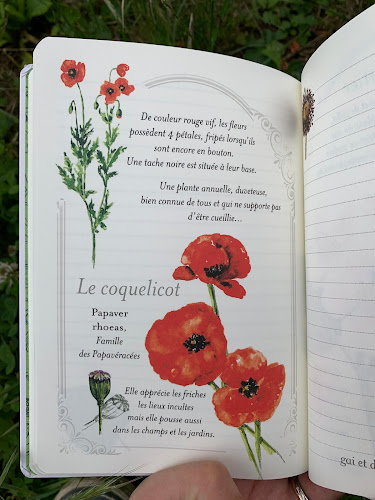 De couleur rouge vif, les fleurs
possèdent 4 pétales, fripés lorsqu'ils
sont encore en bouton.
Une tache noire est située à leur base.
Une plante annuelle, duveteuse,
bien connue de tous et qui ne supporte pas
d'être cueillie...
Le coquelicot
Papaver
rhoeas,
Famille
des Papavéracées
Elle apprécie les friches
les lieux incultes
mais elle pousse aussi
dans les champs et les jardins.
gai et d